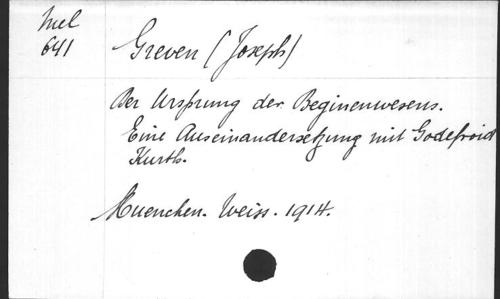 Mel
641
Greven (Joseph)
Der Ursprung der Beginenwesens.
Eine Auseinandersetzung mit Godefroid
Kurth.
Muenchen. Weiss. 1914.